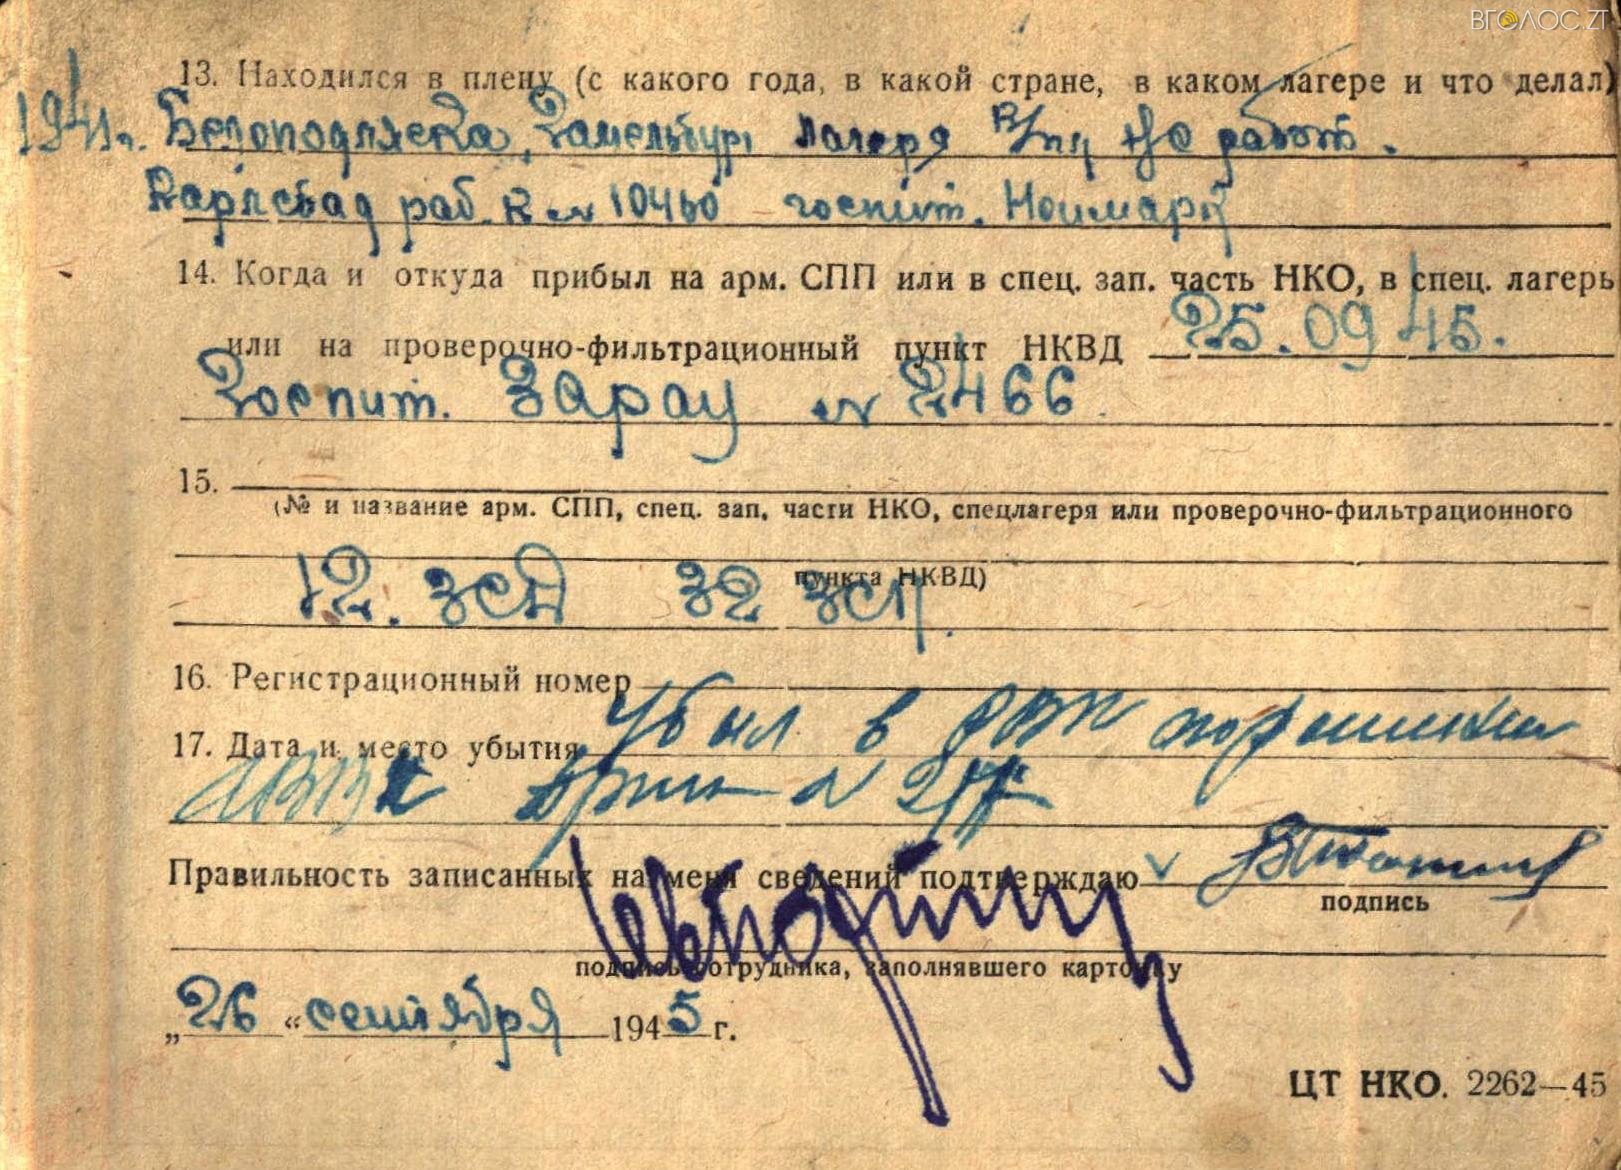 ВГОЛОС.ZT
13. Находился в плену (с какого года, в какой стране, в каком лагере и что делал)
1941г. Белоподляска, Гамельбург лагеря В/пл не работ.
Карлсбад раб. К № 10460 госпит. Ноймарк
14. Когда и откуда прибыл на арм. СПП или в спец. зап. часть НКО, в спец. лагерь
или на проверочно-фильтрационный пункт НКВД 25.09 45.
Госпит. Зарау № 2466
15.
(№ и название арм. СПП, спец. зап. части НКО, спецлагеря или проверочно-фильтрационного
пункта НКВД)
12. зсд 32 зсп.
16. Регистрационный номер
17. Дата и место убытия Убыл в
№
Правильность записанных на меня сведений подтверждаю
подпись
подпись сотрудника, заполнявшего карточку
„26“ сентября 1945 г.
ЦТ НКО. 2262—45